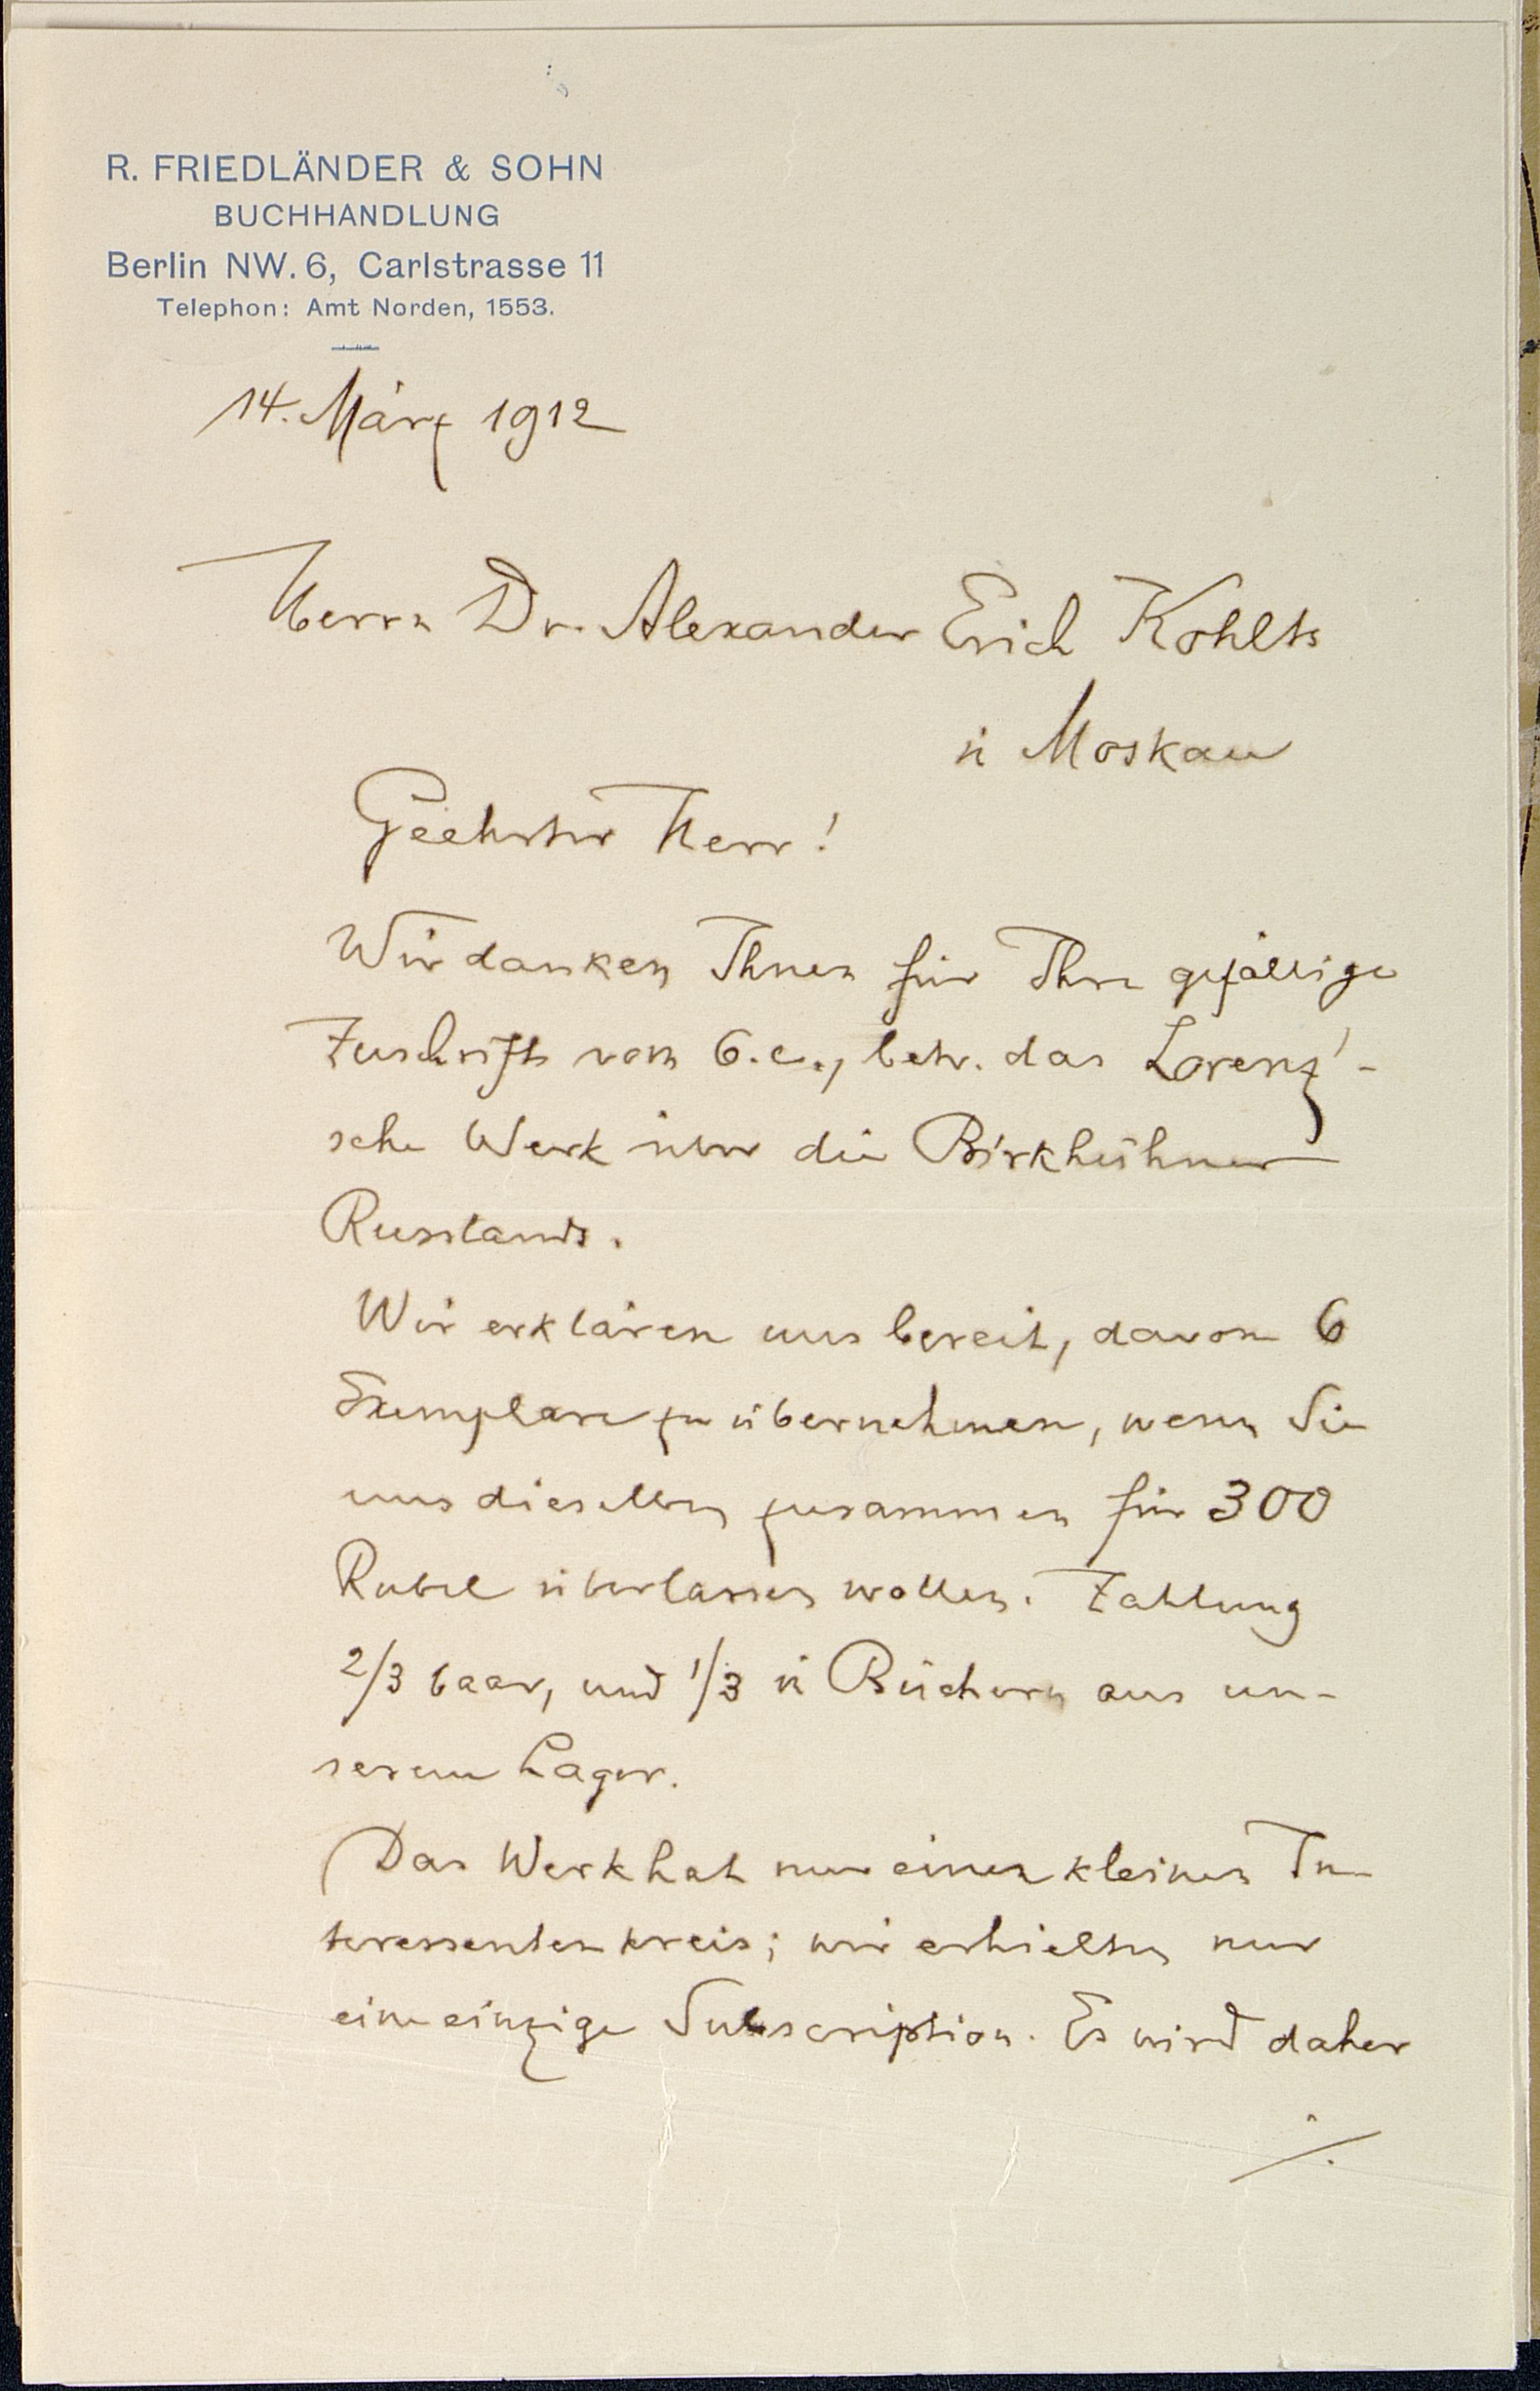 R. FRIEDLÄNDER & SOHN
BUCHHANDLUNG
Berlin NW. 6, Carlstrasse 11
Telephon: Amt Norden, 1553.
14. März 1912
Herrn Dr. Alexander Erich Kohlts
in Moskau
Geehrter Herr!
Wir danken Ihnen für Ihre gefällige
Zuschrift vom 6. c., betr. das Lorenz'-
sche Werk über die Birkhühner
Russlands.
Wir erklären uns bereit, davon 6
Exemplare zu übernehmen, wenn Sie
uns dieselben zusammen für 300
Rubel überlassen wollen. Zahlung
2/3 baar, und 1/3 in Büchern aus un-
serem Lager.
Das Werk hat nur einen kleinen In-
teressentenkreis; wir erhielten nur
eine einzige Subscription. Es wird daher
./.